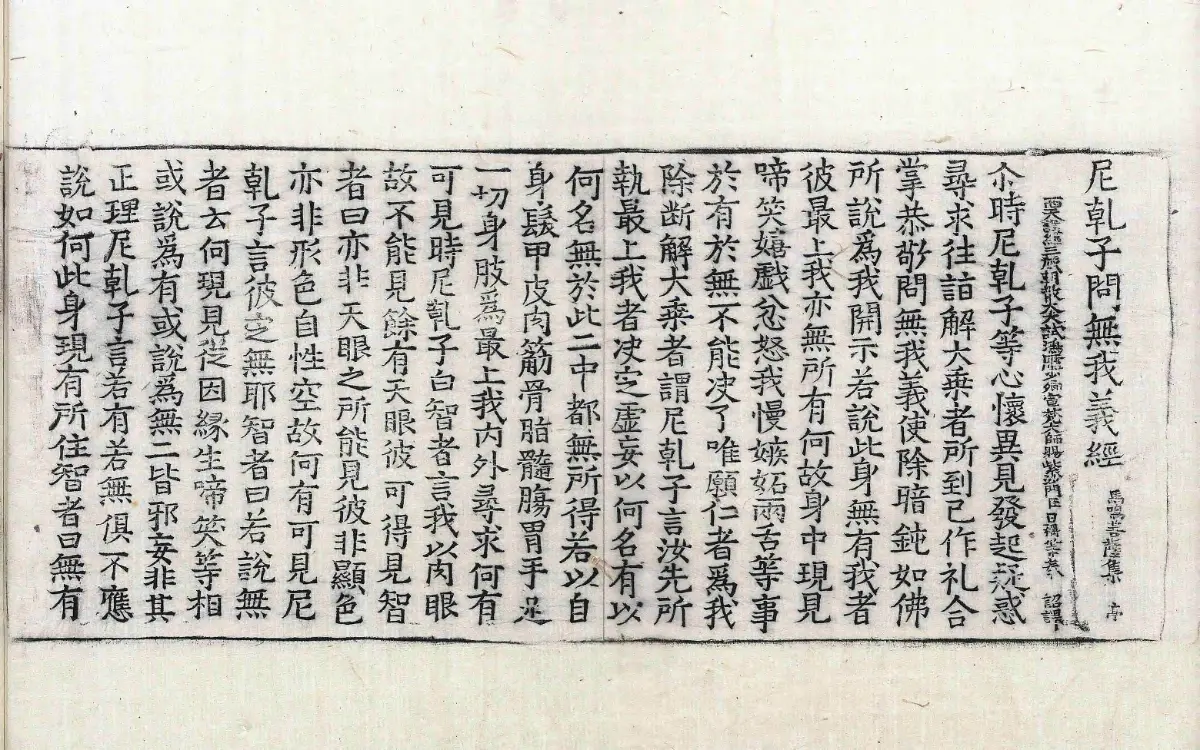 尼乹子問無我義經 馬鳴菩薩集
西天譯經三藏朝散大夫試鴻臚少卿宣梵大師賜紫沙門臣日稱等奉 詔譯
尒時尼乹子等心懷異見發起疑惑
尋求往詣解大乗者所到已作礼合
掌恭敬問無我義使除暗鈍如佛
所說為我開示若說此身無有我者
彼最上我亦無所有何故身中現見
啼笑嬉戲忿怒我慢嫉妬兩舌等事
於有於無不能决了唯願仁者為我
除断解大乗者謂尼乹子言汝先所
執最上我者决定虛妄以何名有以
何名無於此二中都無所得若以自
身髮甲皮肉筋骨脂髓腸胃手足
一切身肢為最上我內外尋求何有
可見時尼乹子白智者言我以肉眼
故不能見餘有天眼彼可得見智
者曰亦非天眼之所能見彼非顯色
亦非形色自性空故何有可見尼
乹子言彼定無耶智者曰若說無
者云何現見從因緣生啼笑等相
或說為有或說為無二皆邪妄非其
正理尼乹子言若有若無俱不應
說如何此身現有所住智者曰無有